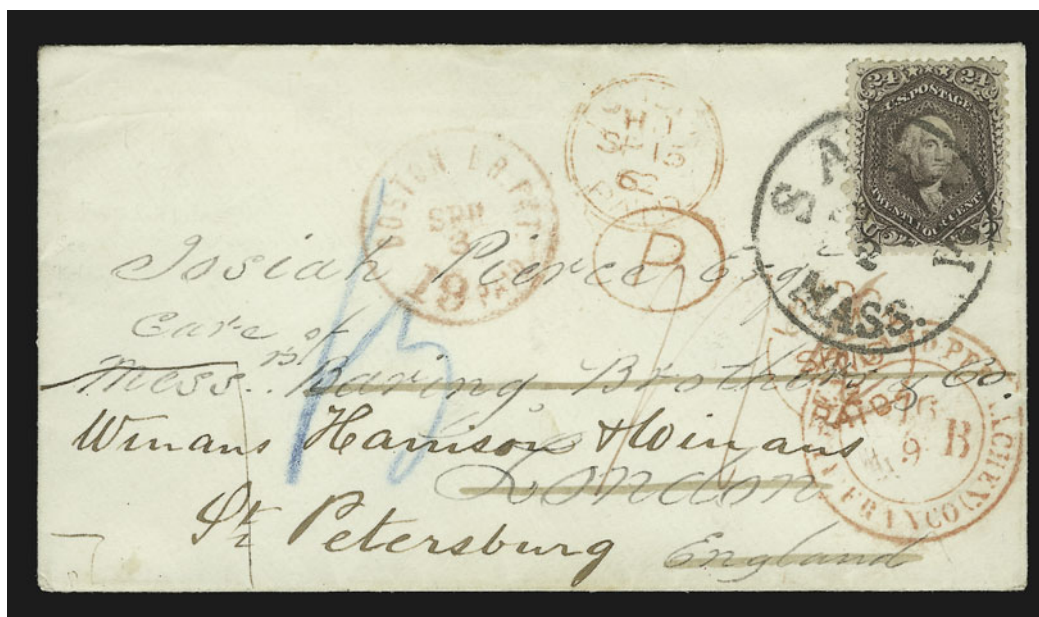 24 24
U.S. POSTAGE
TWENTY FOUR CENTS
SALEM
2
MASS.
BOSTON BR. PKT.
SEP
3
19 PAID
SP 15
62
PAID
P
Josiah Pierce Esq
Care of
Messrs. Baring Brothers & Co.
Winans Harrison & Winans
London
St Petersburg
England
PAID
B
9
FRANCO